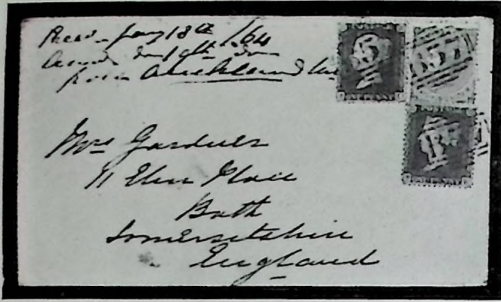 Recd Jany 18th /64
from Auckland
Mrs Gardner
11 Elm Place
Bath
Somersetshire
England